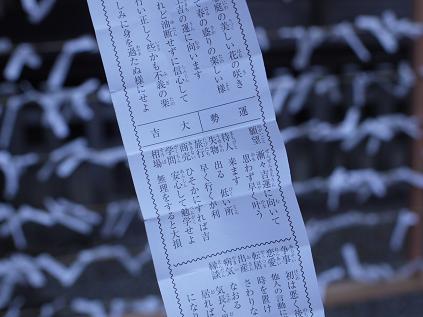 庭の美しい花の咲き
て春の盛りの楽しい様
吉の運に向います
れど油断せずに信心して
行い正しく些かも不義の楽
しみに身を過たぬ様にせよ
運勢 大吉
願望 漸々吉運に向いて
思わず早く叶う
待人 来ます
失物 出る 低い所
旅行 早く行くが利
商売 ひそかにすれば吉
学問 安心して勉学せよ
相場 無理をすると大損
争事 初は悪く後
恋愛 他人の言動に
転居 時を置け
出産 さわりな
病気 なおる
縁談 気長
居れば
になり